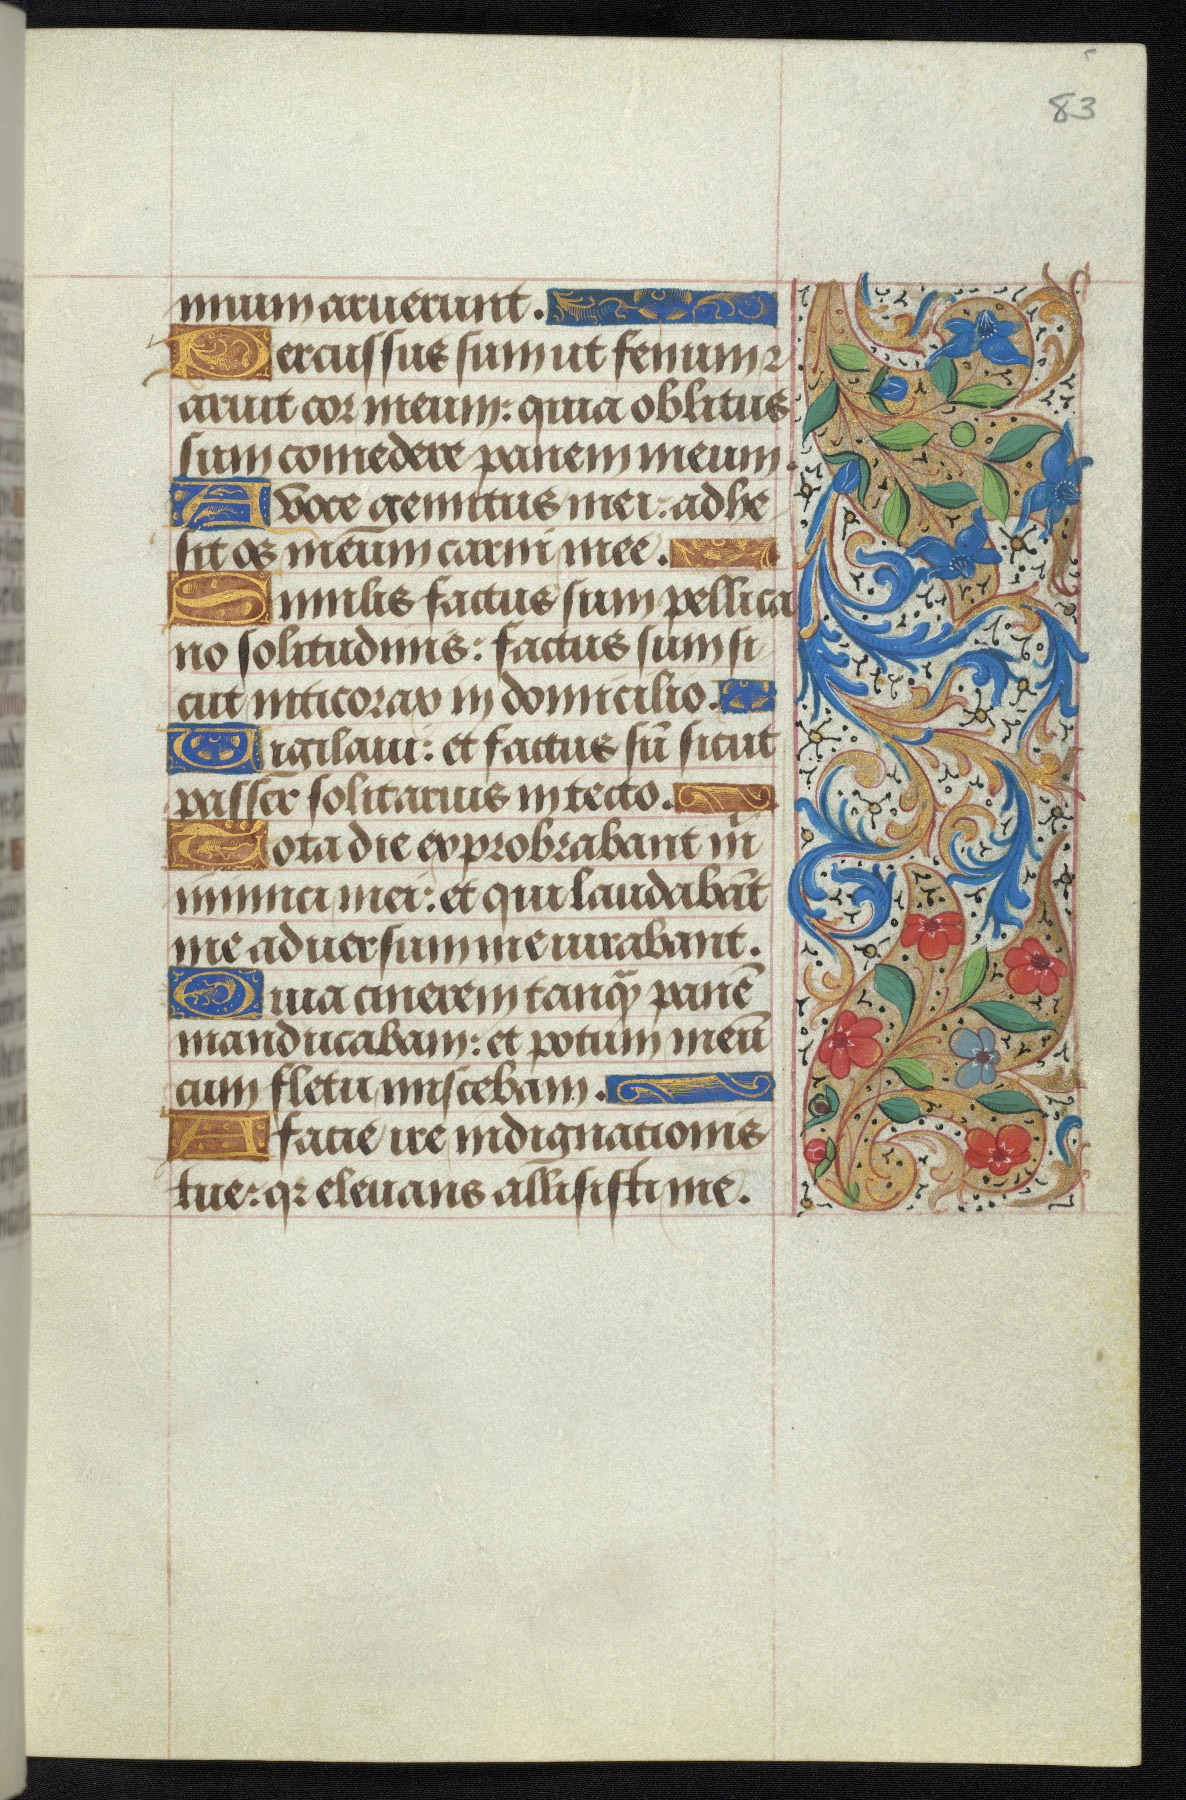 83
mium aruerunt.
Percussus sum ut fenum ⁊
aruit cor meum: quia oblitus
sum comedere panem meum.
A voce gemitus mei: adhe
sit os meūm carni mee.
Similis factus sum pellica
no solitudinis: factus sum si
cut niticorax in domicilio.
Vigilaui: et factus sū sicut
passer solitarius in tecto.
Tota die exprobrabant m̄
inimici mei: et qui laudabāt
me aduersum me iurabant.
Quia cinerem tanq̄ panē
manducabam: et potum meū
cum fletu miscebam.
A facie ire indignationis
tue: qꝛ eleuans allisisti me.